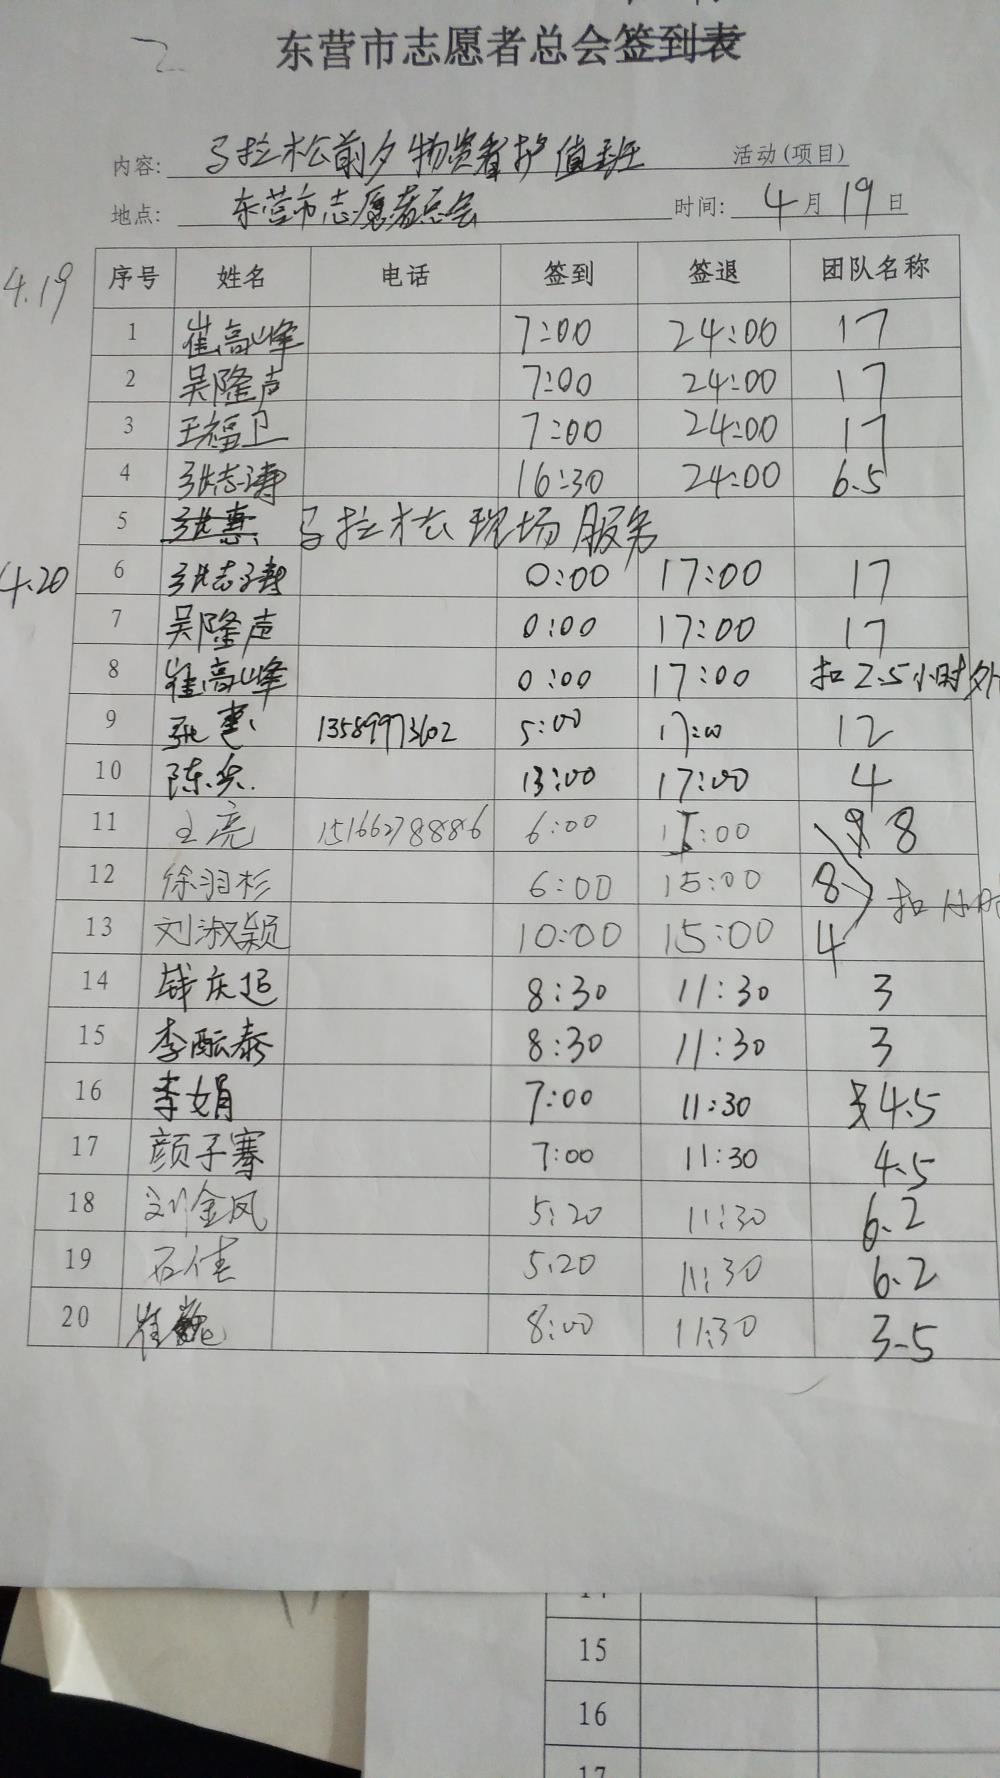 东营市志愿者总会签到表
内容: 马拉松前夕物资看护值班 活动(项目)
地点: 东营市志愿者总会 时间: 4月19日
4.19
序号 姓名 电话 签到 签退 团队名称
1 崔高峰 7:00 24:00 17
2 吴隆声 7:00 24:00 17
3 王福卫 7:00 24:00 17
4 张志涛 16:30 24:00 6.5
5 张惠 马拉松现场服务
4.20
6 张志涛 0:00 17:00 17
7 吴隆声 0:00 17:00 17
8 崔高峰 0:00 17:00 扣2.5小时外
9 张惠 13589973602 5:00 17:00 12
10 陈 13:00 17:00 4
11 王亮 15166278886 6:00 15:00 8
12 徐羽杉 6:00 15:00 8 扣1小时
13 刘淑颖 10:00 15:00 4
14 钱庆超 8:30 11:30 3
15 李酝泰 8:30 11:30 3
16 李娟 7:00 11:30 4.5
17 颜子骞 7:00 11:30 4.5
18 刘金凤 5:20 11:30 6.2
19 石佳 5:20 11:30 6.2
20 崔巍 8:00 11:30 3.5
15
16
17